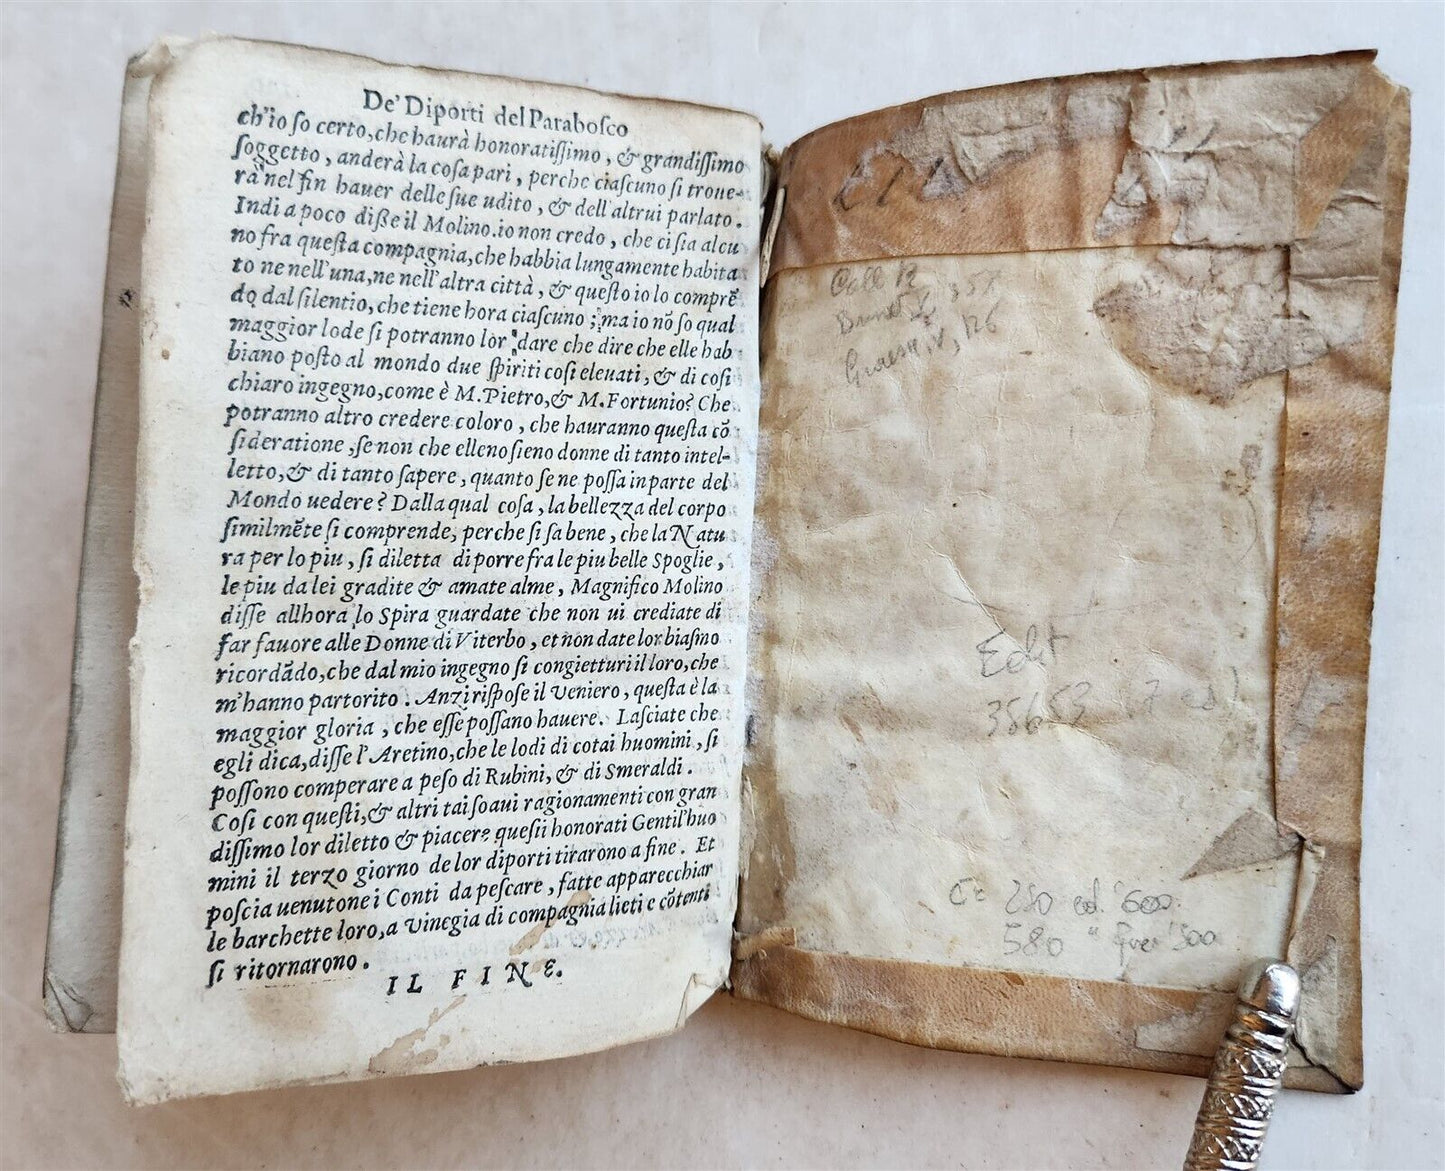 De' Diporti del Paraboſco
ch'io ſo certo, che haurà honoratiſſimo, & grandiſſimo
ſoggetto, anderà la coſa pari, perche ciaſcuno ſi troue-
rà nel fin hauer delle ſue udito, & dell'altrui parlato.
Indi a poco diſſe il Molino. io non credo, che ci ſia alcu
no fra queſta compagnia, che habbia lungamente habita
to ne nell'una, ne nell'altra città, & queſto io lo comprẽ
do dal ſilentio, che tiene hora ciaſcuno; ma io nõ ſo qual
maggior lode ſi potranno lor dare che dire che elle hab
biano poſto al mondo due ſpiriti coſi eleuati, & di coſi
chiaro ingegno, come è M. Pietro, & M. Fortunio? Che
potranno altro credere coloro, che hauranno queſta cõ
ſideratione, ſe non che elleno ſieno donne di tanto intel-
letto, & di tanto ſapere, quanto ſe ne poſſa in parte del
Mondo uedere? Dalla qual coſa, la bellezza del corpo
ſimilmẽte ſi comprende, perche ſi ſa bene, che la Natu
ra per lo piu, ſi diletta di porre fra le piu belle Spoglie,
le piu da lei gradite & amate alme, Magnifico Molino
diſſe allhora lo Spira guardate che non ui crediate di
far fauore alle Donne di Viterbo, et non date lor biaſmo
ricordãdo, che dal mio ingegno ſi congietturi il loro, che
m'hanno partorito. Anzi riſpoſe il Veniero, queſta è la
maggior gloria, che eſſe poſſano hauere. Laſciate che
egli dica, diſſe l'Aretino, che le lodi di cotai huomini, ſi
poſſono comperare a peſo di Rubini, & di Smeraldi.
Coſi con queſti, & altri tai ſoaui ragionamenti con gran
diſſimo lor diletto & piacere queſii honorati Gentil'huo
mini il terzo giorno de lor diporti tirarono a fine. Et
poſcia uenutone i Conti da peſcare, fatte apparecchiar
le barchette loro, a Vinegia di compagnia lieti e cõtenti
ſi ritornarono.
IL FINE.
Coll
Brunet
357
Graesse, V, 126
Edit
35653
250 ed. '600
580 "
'500